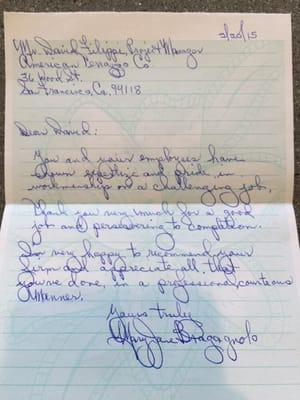 2/20/15
Mr. David Filippi, Project Manager
American Terrazzo Co
36 Wood St.
San Francisco, Ca. 94118
Dear David:
You and your employees have
shown expertise and pride in
workmenship on a challenging job,
Thank you very much for a good
job and persevering to completion.
I'm very happy to recommend your
firm and appreciate all that
you've done, in a professional, courteous
Manner.
Yours truly
Mary Jane Bragagnolo